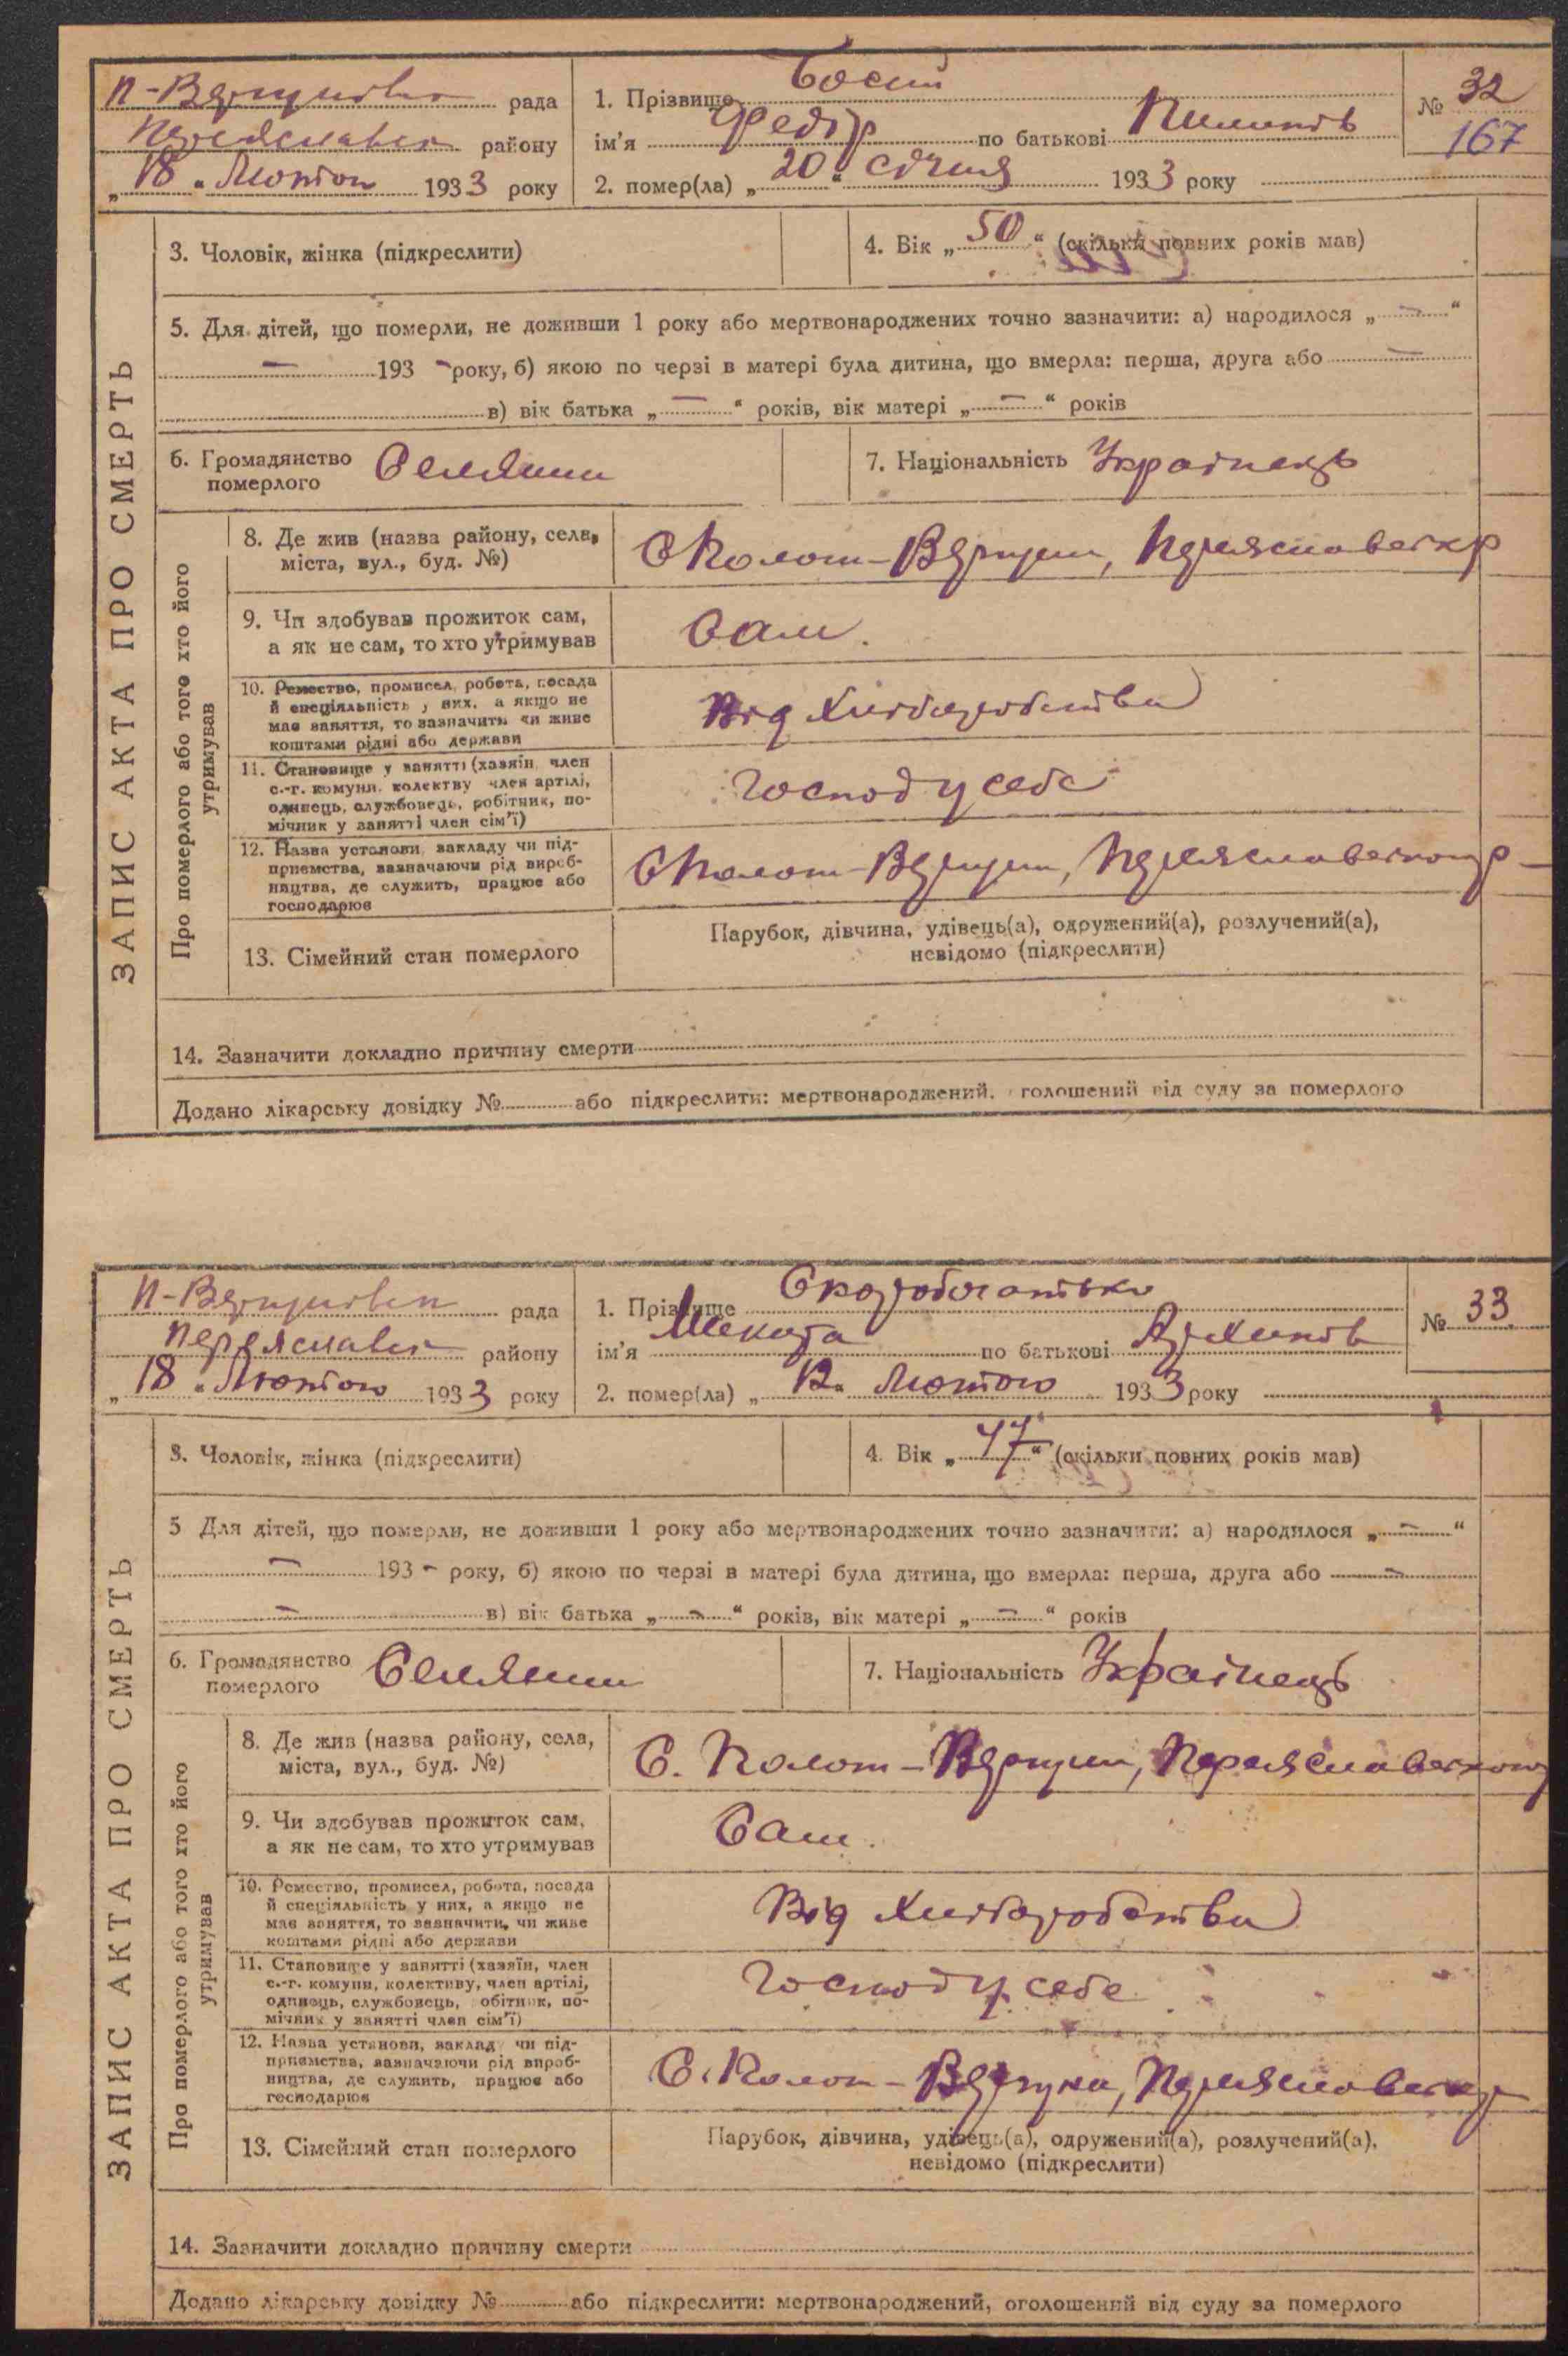 П-Вергунівсь рада
Переяславсь району
„18" Лютого 1933 року
1. Прізвище Босий
ім'я Федір по батькові Пилипів
2. помер(ла) „20" січня 1933 року
№ 32
167
ЗАПИС АКТА ПРО СМЕРТЬ
3. Чоловік, жінка (підкреслити)
4. Вік „50" (скільки повних років мав)
5. Для дітей, що померли, не доживши 1 року або мертвонароджених точно зазначити: а) народилося „—"
— 193 - року, б) якою по черзі в матері була дитина, що вмерла: перша, друга або —
в) вік батька „—" років, вік матері „—" років
6. Громадянство
померлого
Селянин
7. Національність Українець
Про померлого або того хто його
утримував
8. Де жив (назва району, села,
міста, вул., буд. №)
С Полог-Вергун, Переяславськ р
9. Чи здобував прожиток сам,
а як не сам, то хто утримував
Сам.
10. Ремество, промисел, робота, посада
й спеціяльність у них, а якщо не
має заняття, то зазначити чи живе
коштами рідні або держави
Від Хліборобства
11. Становище у занятті (хазяїн, член
с.-г. комуни, колективу член артілі,
одинець, службовець, робітник, по-
мічник у занятті член сім'ї)
Господ у себе
12. Назва установи, закладу чи під-
приємства, зазначаючи рід вироб-
ництва, де служить, працює або
господарює
13. Сімейний стан померлого
Парубок, дівчина, удівець(а), одружений(а), розлучений(а),
невідомо (підкреслити)
14. Зазначити докладно причину смерти
Додано лікарську довідку № або підкреслити: мертвонароджений, оголошений від суду за померлого
П-Вергунівсь рада
Переяславсь району
„18" Лютого 1933 року
1. Прізвище Скоробогатько
ім'я Микита по батькові
2. помер(ла) „12" Лютого 1933 року
№ 33
ЗАПИС АКТА ПРО СМЕРТЬ
3. Чоловік, жінка (підкреслити)
4. Вік „47" (скільки повних років мав)
5 Для дітей, що померли, не доживши 1 року або мертвонароджених точно зазначити: а) народилося „—"
— 193 - року, б) якою по черзі в матері була дитина, що вмерла: перша, друга або —
— в) вік батька „—" років, вік матері „—" років
6. Громадянство
померлого
Селянин
7. Національність Українець
Про померлого або того хто його
утримував
8. Де жив (назва району, села,
міста, вул., буд. №)
С. Полог-Вергун, Переяславськог
9. Чи здобував прожиток сам,
а як не сам, то хто утримував
Сам.
10. Ремество, промисел, робота, посада
й спеціяльність у них, а якщо не
має заняття, то зазначити, чи живе
коштами рідні або держави
Від Хліборобства
11. Становище у занятті (хазяїн, член
с.-г. комуни, колективу, член артілі,
одинець, службовець, робітник, по-
мічник у занятті член сім'ї)
Господ у себе
12. Назва установи, закладу чи під-
приємства, зазначаючи рід вироб-
ництва, де служить, працює або
господарює
13. Сімейний стан померлого
Парубок, дівчина, удівець(а), одружений(а), розлучений(а),
невідомо (підкреслити)
14. Зазначити докладно причину смерти
Додано лікарську довідку № або підкреслити: мертвонароджений, оголошений від суду за померлого